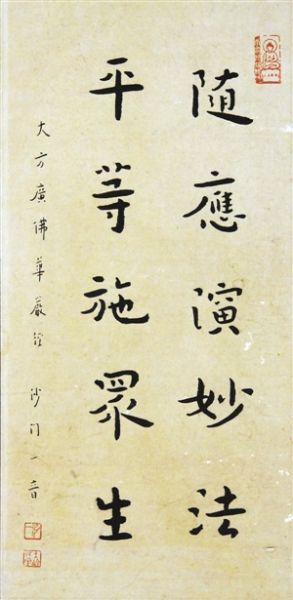 随應演妙法
平等施眾生
大方廣佛華嚴經 沙門一音